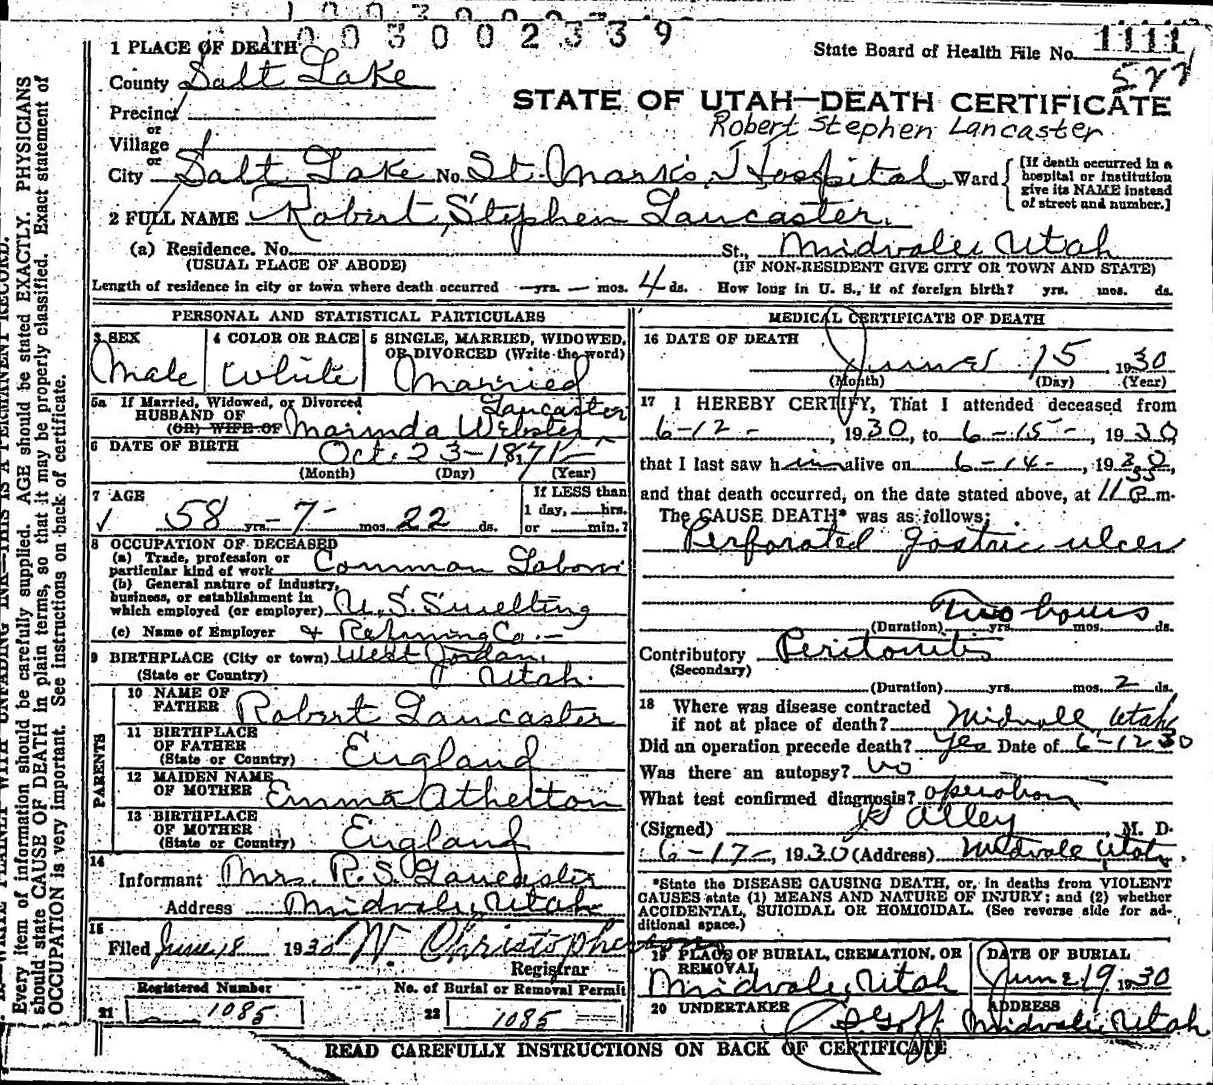 1003002339
1 PLACE OF DEATH
State Board of Health File No. 1111
County Salt Lake
STATE OF UTAH—DEATH CERTIFICATE
Precinct
Robert Stephen Lancaster
or
Village
or
City Salt Lake No. St. Mark's Hospital Ward [If death occurred in a hospital or institution give its NAME instead of street and number.]
2 FULL NAME Robert Stephen Lancaster.
(a) Residence. No. St., Midvale, Utah
(USUAL PLACE OF ABODE) (IF NON-RESIDENT GIVE CITY OR TOWN AND STATE)
Length of residence in city or town where death occurred — yrs. — mos. 4 ds. How long in U. S., if of foreign birth? yrs. mos. ds.
PERSONAL AND STATISTICAL PARTICULARS
3 SEX Male
4 COLOR OR RACE White
5 SINGLE, MARRIED, WIDOWED, OR DIVORCED (Write the word) Married
5a If Married, Widowed, or Divorced Lancaster
HUSBAND OF
(OR) WIFE OF Marinda Webster
6 DATE OF BIRTH Oct. 23-1871
(Month) (Day) (Year)
7 AGE 58 yrs. 7 mos. 22 ds.
If LESS than 1 day, hrs. or min.?
8 OCCUPATION OF DECEASED
(a) Trade, profession or particular kind of work Common Labor
(b) General nature of industry, business, or establishment in which employed (or employer) U.S. Smelting
(c) Name of Employer & Refining Co.
9 BIRTHPLACE (City or town) West Jordan,
(State or Country) Utah.
PARENTS
10 NAME OF FATHER Robert Lancaster
11 BIRTHPLACE OF FATHER (State or Country) England
12 MAIDEN NAME OF MOTHER Emma Atherton
13 BIRTHPLACE OF MOTHER (State or Country) England
14
Informant Mrs. R.S. Lancaster
Address Midvale, Utah
15
Filed June 18 1930 W. Christopherson
Registrar
Registered Number No. of Burial or Removal Permit
21 1085 22 1085
MEDICAL CERTIFICATE OF DEATH
16 DATE OF DEATH June 15 1930
(Month) (Day) (Year)
17 I HEREBY CERTIFY, That I attended deceased from
6-12-, 1930, to 6-15-, 1930
that I last saw him alive on 6-14-, 1930,
and that death occurred, on the date stated above, at 11 55 P. m.
The CAUSE DEATH* was as follows:
Perforated gastric ulcer
Two hours
(Duration) yrs. mos. ds.
Contributory Peritonitis
(Secondary)
(Duration) yrs. mos. 2 ds.
18 Where was disease contracted
if not at place of death? Midvale Utah
Did an operation precede death? Yes Date of 6-12 30
Was there an autopsy? no
What test confirmed diagnosis? operation
(Signed) Alley, M. D.
6-17-, 1930 (Address) Midvale Utah.
*State the DISEASE CAUSING DEATH, or, in deaths from VIOLENT
CAUSES state (1) MEANS AND NATURE OF INJURY; and (2) whether
ACCIDENTAL, SUICIDAL OR HOMICIDAL. (See reverse side for ad-
ditional space.)
19 PLACE OF BURIAL, CREMATION, OR REMOVAL Midvale, Utah
DATE OF BURIAL June 19 1930
20 UNDERTAKER Goff
ADDRESS Midvale, Utah
READ CAREFULLY INSTRUCTIONS ON BACK OF CERTIFICATE
Every item of information should be carefully supplied. AGE should be stated EXACTLY. PHYSICIANS
should state CAUSE OF DEATH in plain terms, so that it may be properly classified. Exact statement of
OCCUPATION is very important. See instructions on back of certificate.